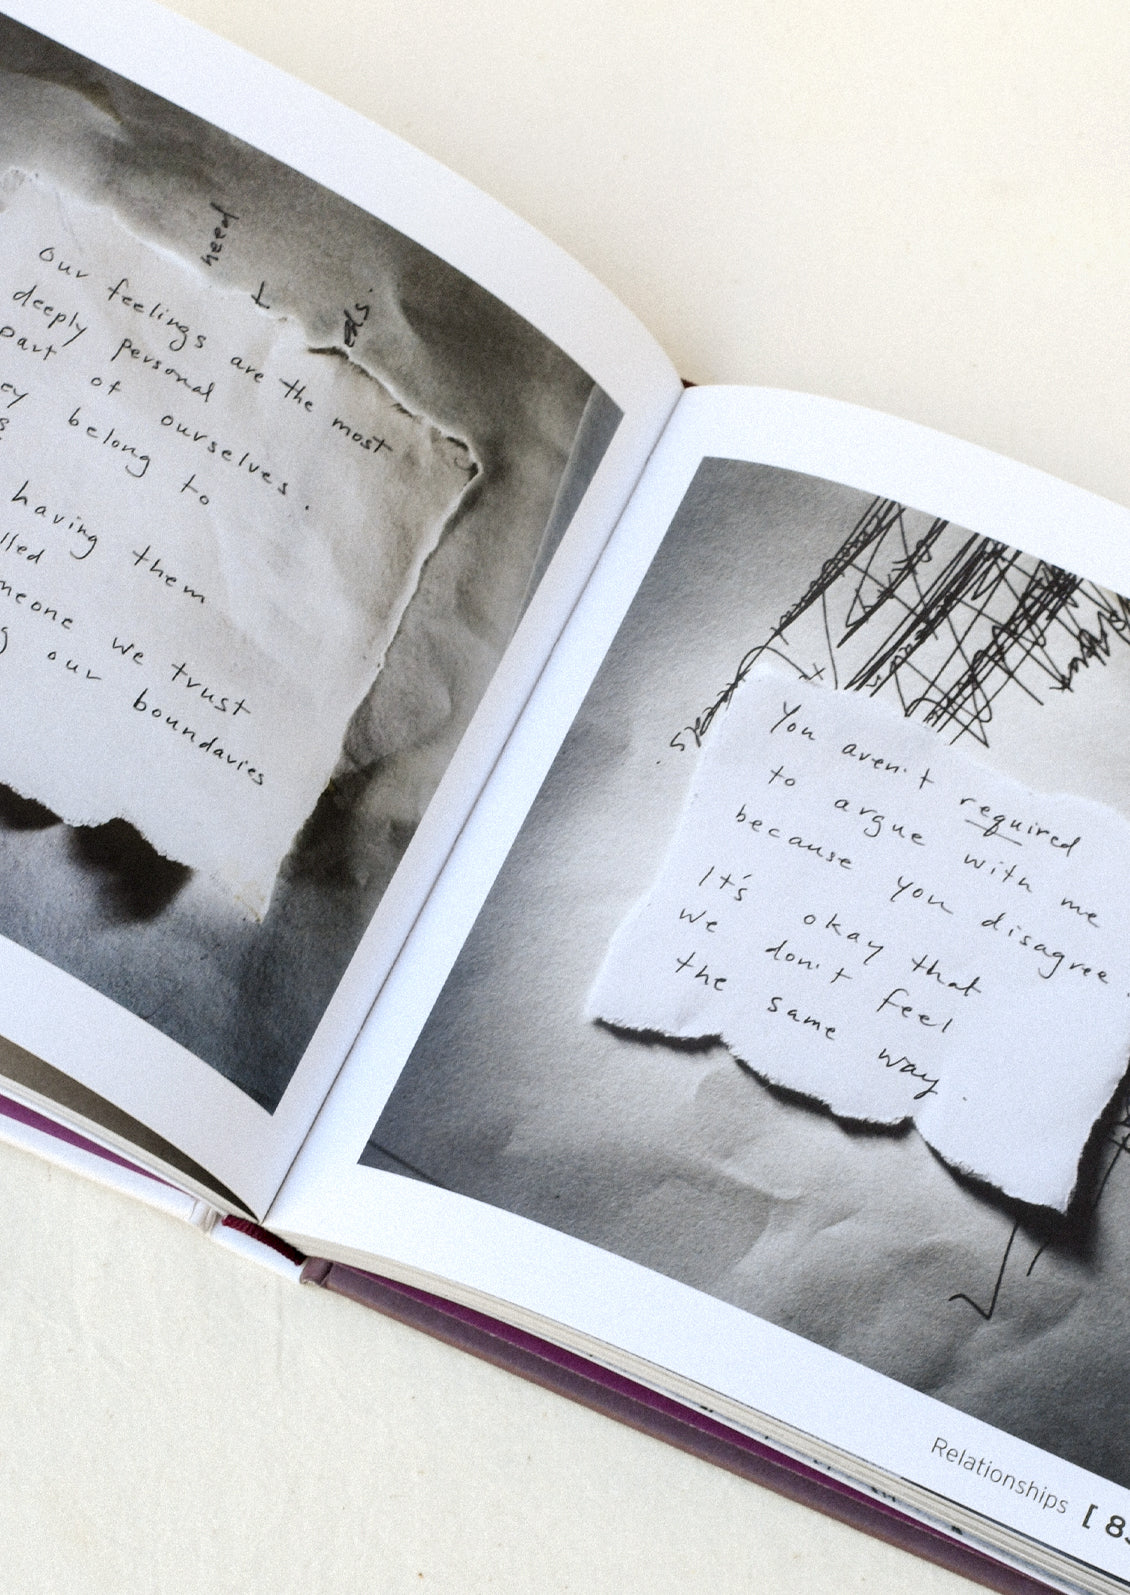 need
Our feelings are the most
deeply personal
part of ourselves.
belong to
having them
we trust
our boundaries
You aren't required
to argue with me
because you disagree.
It's okay that
we don't feel
the same way.
Relationships